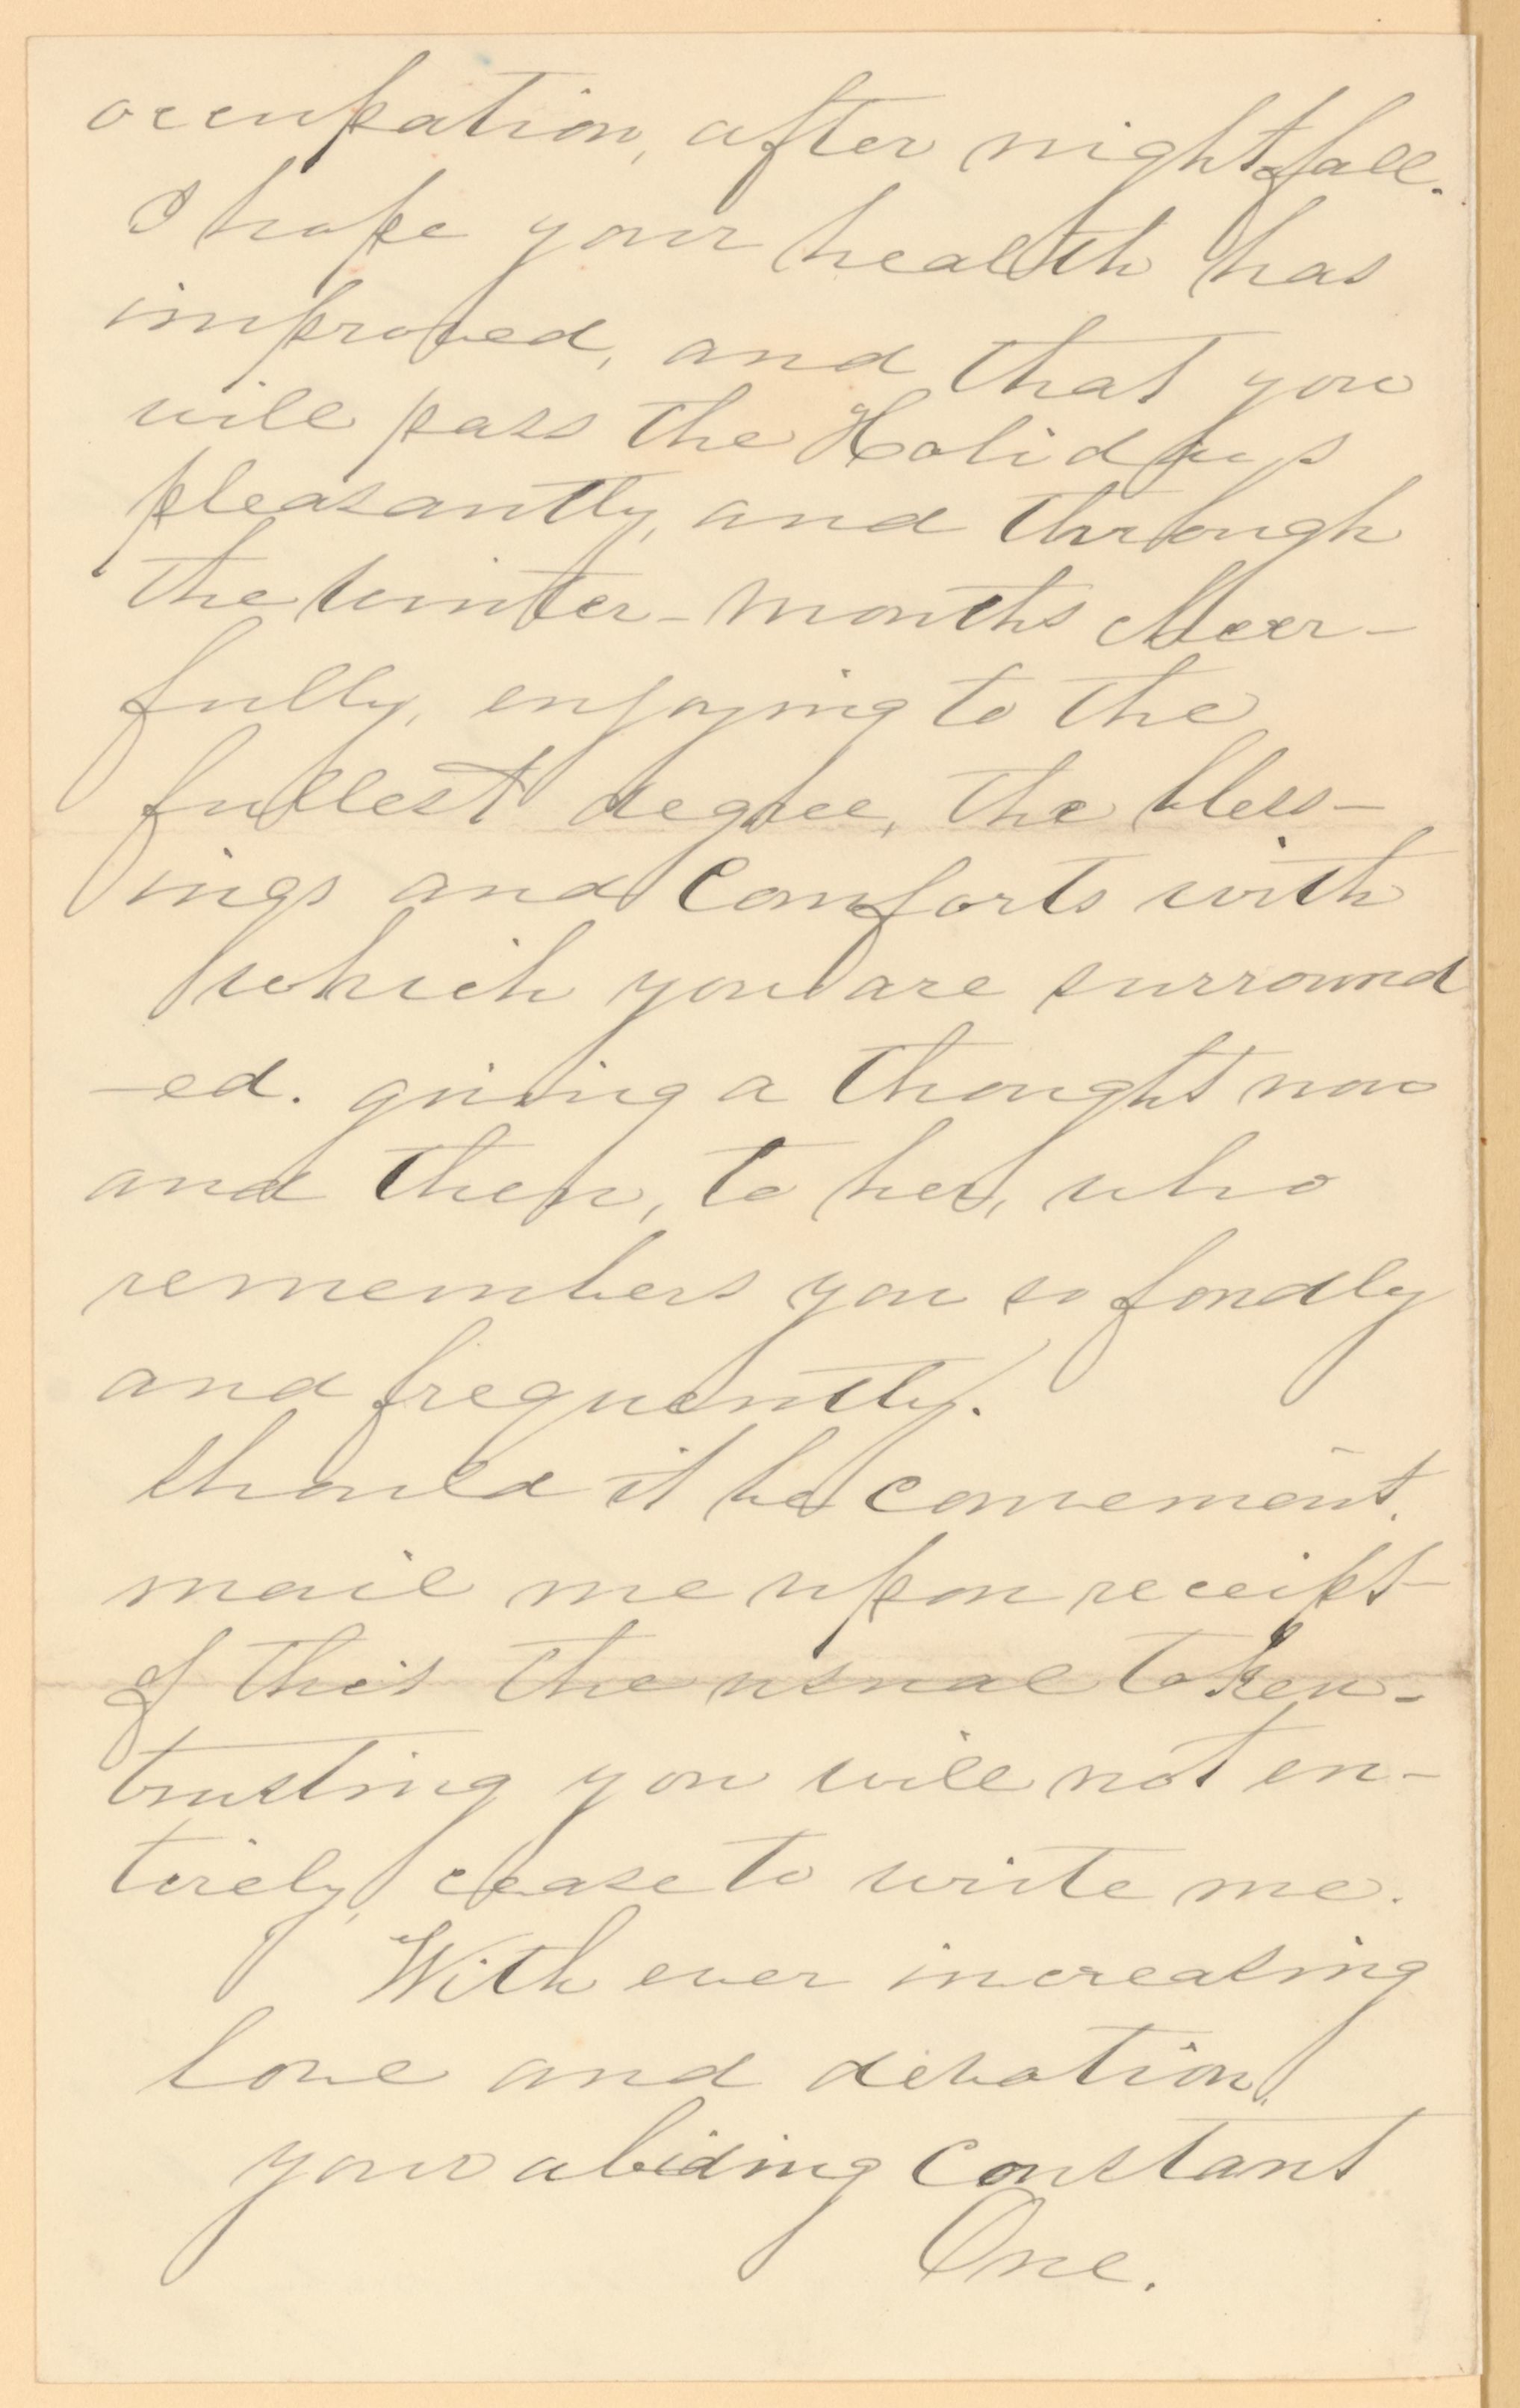 occupation, after night-fall.
I hope your health has
improved, and that you
will pass the Holidays
pleasantly, and through
the winter-months cheer-
fully, enjoying to the
fullest degree, the bless-
ings and comforts with
which you are surround
-ed. giving a thought now
and then, to her, who
remembers you so fondly
and frequently.
Should it be convenient,
mail me upon receipt
of this the usual token-
trusting you will not en-
tirely, cease to write me.
With ever increasing
love and devotion,
your abiding constant
One.